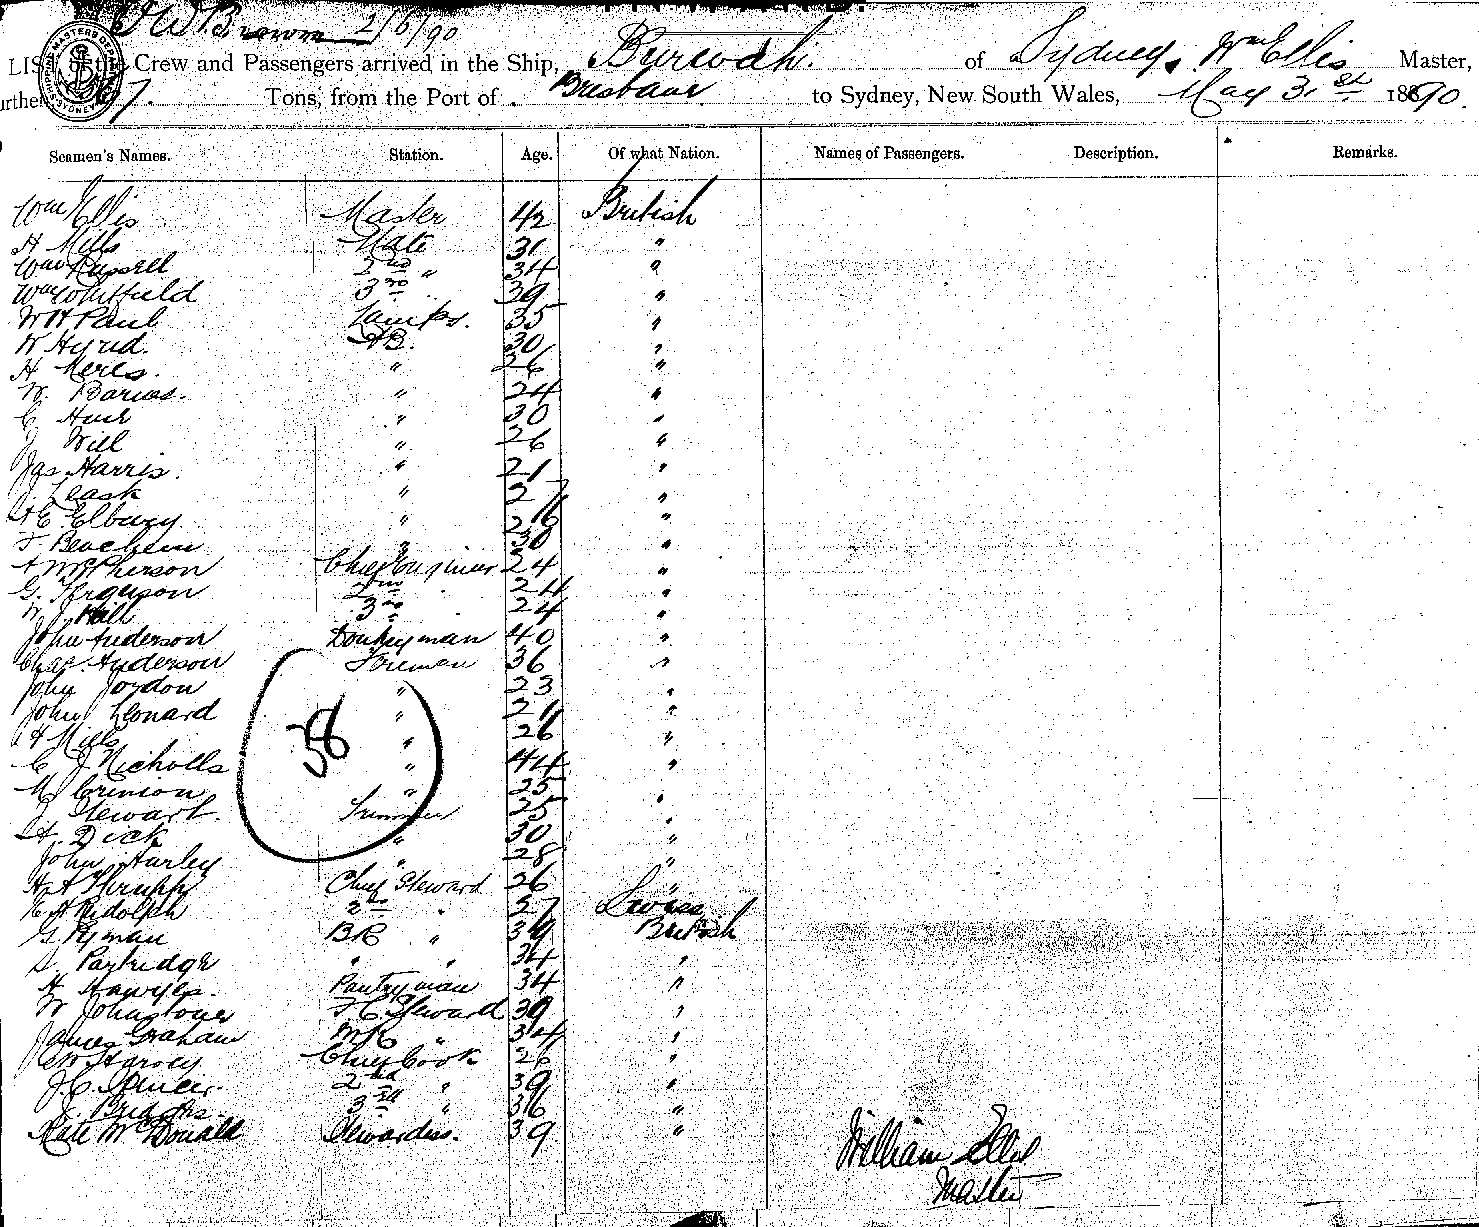 W Brown 2/6/90
SHIPPING MASTERS DEPT SYDNEY
LIST the Crew and Passengers arrived in the Ship, Burwah. of Sydney, Wm Ellis Master,
Burthen 7. Tons, from the Port of Brisbane to Sydney, New South Wales, May 31st 1890.
Seamen's Names. Station. Age. Of what Nation. Names of Passengers. Description. Remarks.
Wm Ellis Master 42 British
H Mills Mate 31 "
Wm Russell 2nd " 34 "
Wm Whitfield 3rd 39 "
W H Paul Lamps. 35 "
W AB. 30 "
H Meres. " 26 "
W. " 24 "
C " 30 "
J Will " 26 "
Jas Harris. " 21 "
J. Leask " 27 "
E Elbury " 26 "
Beachem " 30 "
McPherson Chief Engineer 24 "
G. Ferguson 2nd 24 "
W J Hall 3rd 24 "
John Anderson Donkeyman 40 "
Chas. Anderson Firemen 36 "
John Jordon " 23 "
John Leonard " 24 "
H Mills " 26 "
C J Nicholls " 44 "
M Crinion " 25 "
J Stewart. Trimmer 25 "
A. Dick " 30 "
John Hurley " 28 "
38
H A Thrupp Chief Steward 26 "
A Ridolph 2nd " 27
G. Pyman BR " 39 British
S. Partridge " " 34 "
H Hawyes. Pantryman 34 "
W Johnstone F C Steward 39 "
James Graham MR " 34 "
W Harvey Chief Cook 26 "
J. C. Spencer. 2nd " 39 "
Bridges. 3rd " 36 "
Kate McDonald Stewardess. 39 "
William Ellis
Master